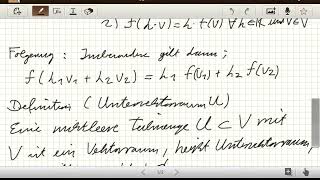 2) f(h·v)=h·f(v) ∀ h∈ℝ und v∈V
Folgerung: Insbesondere gilt dann:
f(h₁v₁+h₂v₂) = h₁ f(v₁)+h₂ f(v₂)
Definition (Untervektorraum U)
Eine nichtleere Teilmenge U⊂V mit
V ist ein Vektorraum, heißt Untervektorraum,